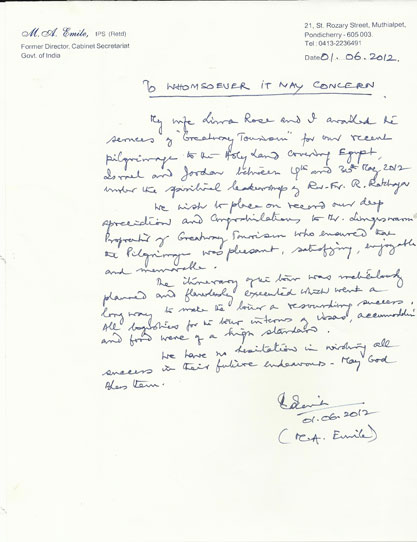 M. A. Emile, IPS (Retd)
Former Director, Cabinet Secretariat
Govt. of India
21, St. Rozary Street, Muthialpet,
Pondicherry - 605 003.
Tel : 0413-2236491
Date 01.06.2012.
TO WHOMSOEVER IT MAY CONCERN
My wife Lima Rose and I availed the
services of "Greatway Tourism" for our recent
pilgrimage to the Holy Land covering Egypt,
Israel and Jordan between 19th and 30th May 2012
under the spiritual leadership of Rev. Fr. R.
We wish to place on record our deep
appreciation and congratulations to Mr. Lingeswaran
Proprietor of Greatway Tourism who ensured that
the Pilgrimage was pleasant, satisfying, enjoyable
and memorable.
The itinerary of the tour was meticulously
planned and flawlessly executed which went a
long way to make the tour a resounding success.
All logistics for the tour interms of visas, accommodation
and food were of a high standard.
We have no hesitation in wishing all
success in their future endeavours. May God
bless them.
01.06.2012
(M.A. Emile)